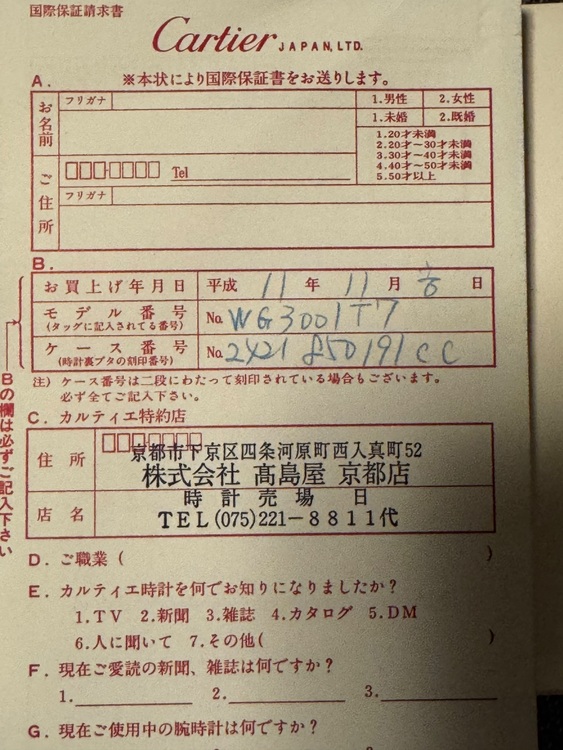 国際保証請求書
Cartier JAPAN, LTD.
A. ※本状により国際保証書をお送りします。
お名前
フリガナ
1.男性 2.女性
1.未婚 2.既婚
1.20才未満
2.20才〜30才未満
3.30才〜40才未満
4.40才〜50才未満
5.50才以上
ご住所
Tel
フリガナ
B.
お買上げ年月日 平成 11 年 11 月 日
モデル番号 No. WG3001T7
(タッグに記入されてる番号)
ケース番号 No. 2421 850191CC
(時計裏ブタの刻印番号)
注) ケース番号は二段にわたって刻印されている場合もございます。
必ず全てご記入下さい。
Bの欄は必ずご記入下さい
C. カルティエ特約店
住所 京都市下京区四条河原町西入真町52
株式会社 髙島屋 京都店
時計売場 日
店名 TEL(075)221-8811代
D. ご職業 ( )
E. カルティエ時計を何でお知りになりましたか?
1.TV 2.新聞 3.雑誌 4.カタログ 5.DM
6.人に聞いて 7.その他( )
F. 現在ご愛読の新聞、雑誌は何ですか?
1. 2. 3.
G. 現在ご使用中の腕時計は何ですか?